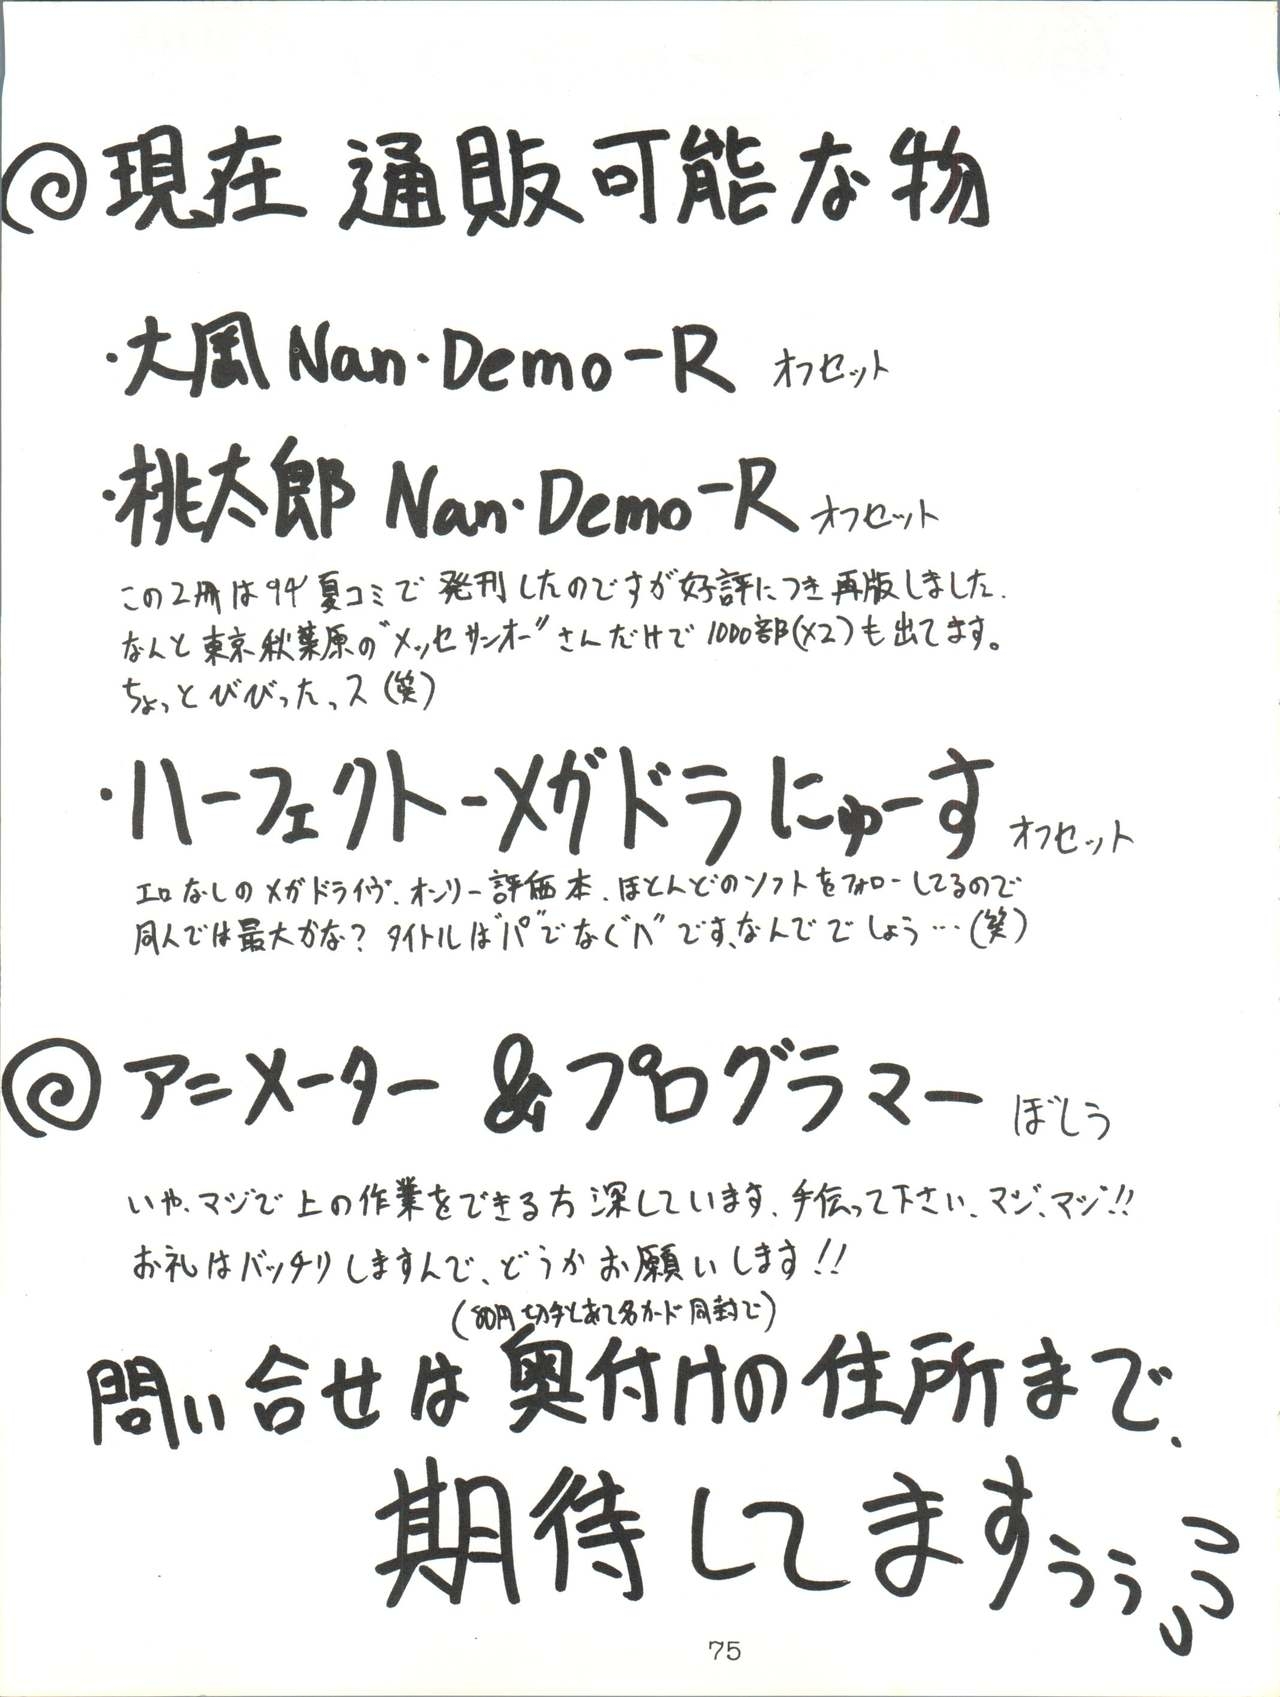 現在 通販可能な物
・大岡 Nan・Demo-R オフセット
・桃太郎 Nan・Demo-R オフセット
この2冊は94'夏コミで発刊したのですが好評につき再版しました.
なんと東京秋葉原の"メッセサンオー"さんだけで1000部(×2)も出てます。
ちょっとびびったっス(笑)
・ハーフェクト-メガドラにゅーす オフセット
エロなしのメガドライヴ.オンリー評価本.ほとんどのソフトをフォローしてるので
同人では最大かな? タイトルは"パ"でなく"ハ"です、なんででしょう…(笑)
アニメーター&プログラマー ぼしう
いや、マジで上の作業をできる方深しています.手伝って下さい、マジ、マジ!!
お礼はバッチリしますんで、どうかお願いします!!
(80円切手とあて名カード同封で)
問い合せは奥付けの住所まで.
期待してますぅぅ
75